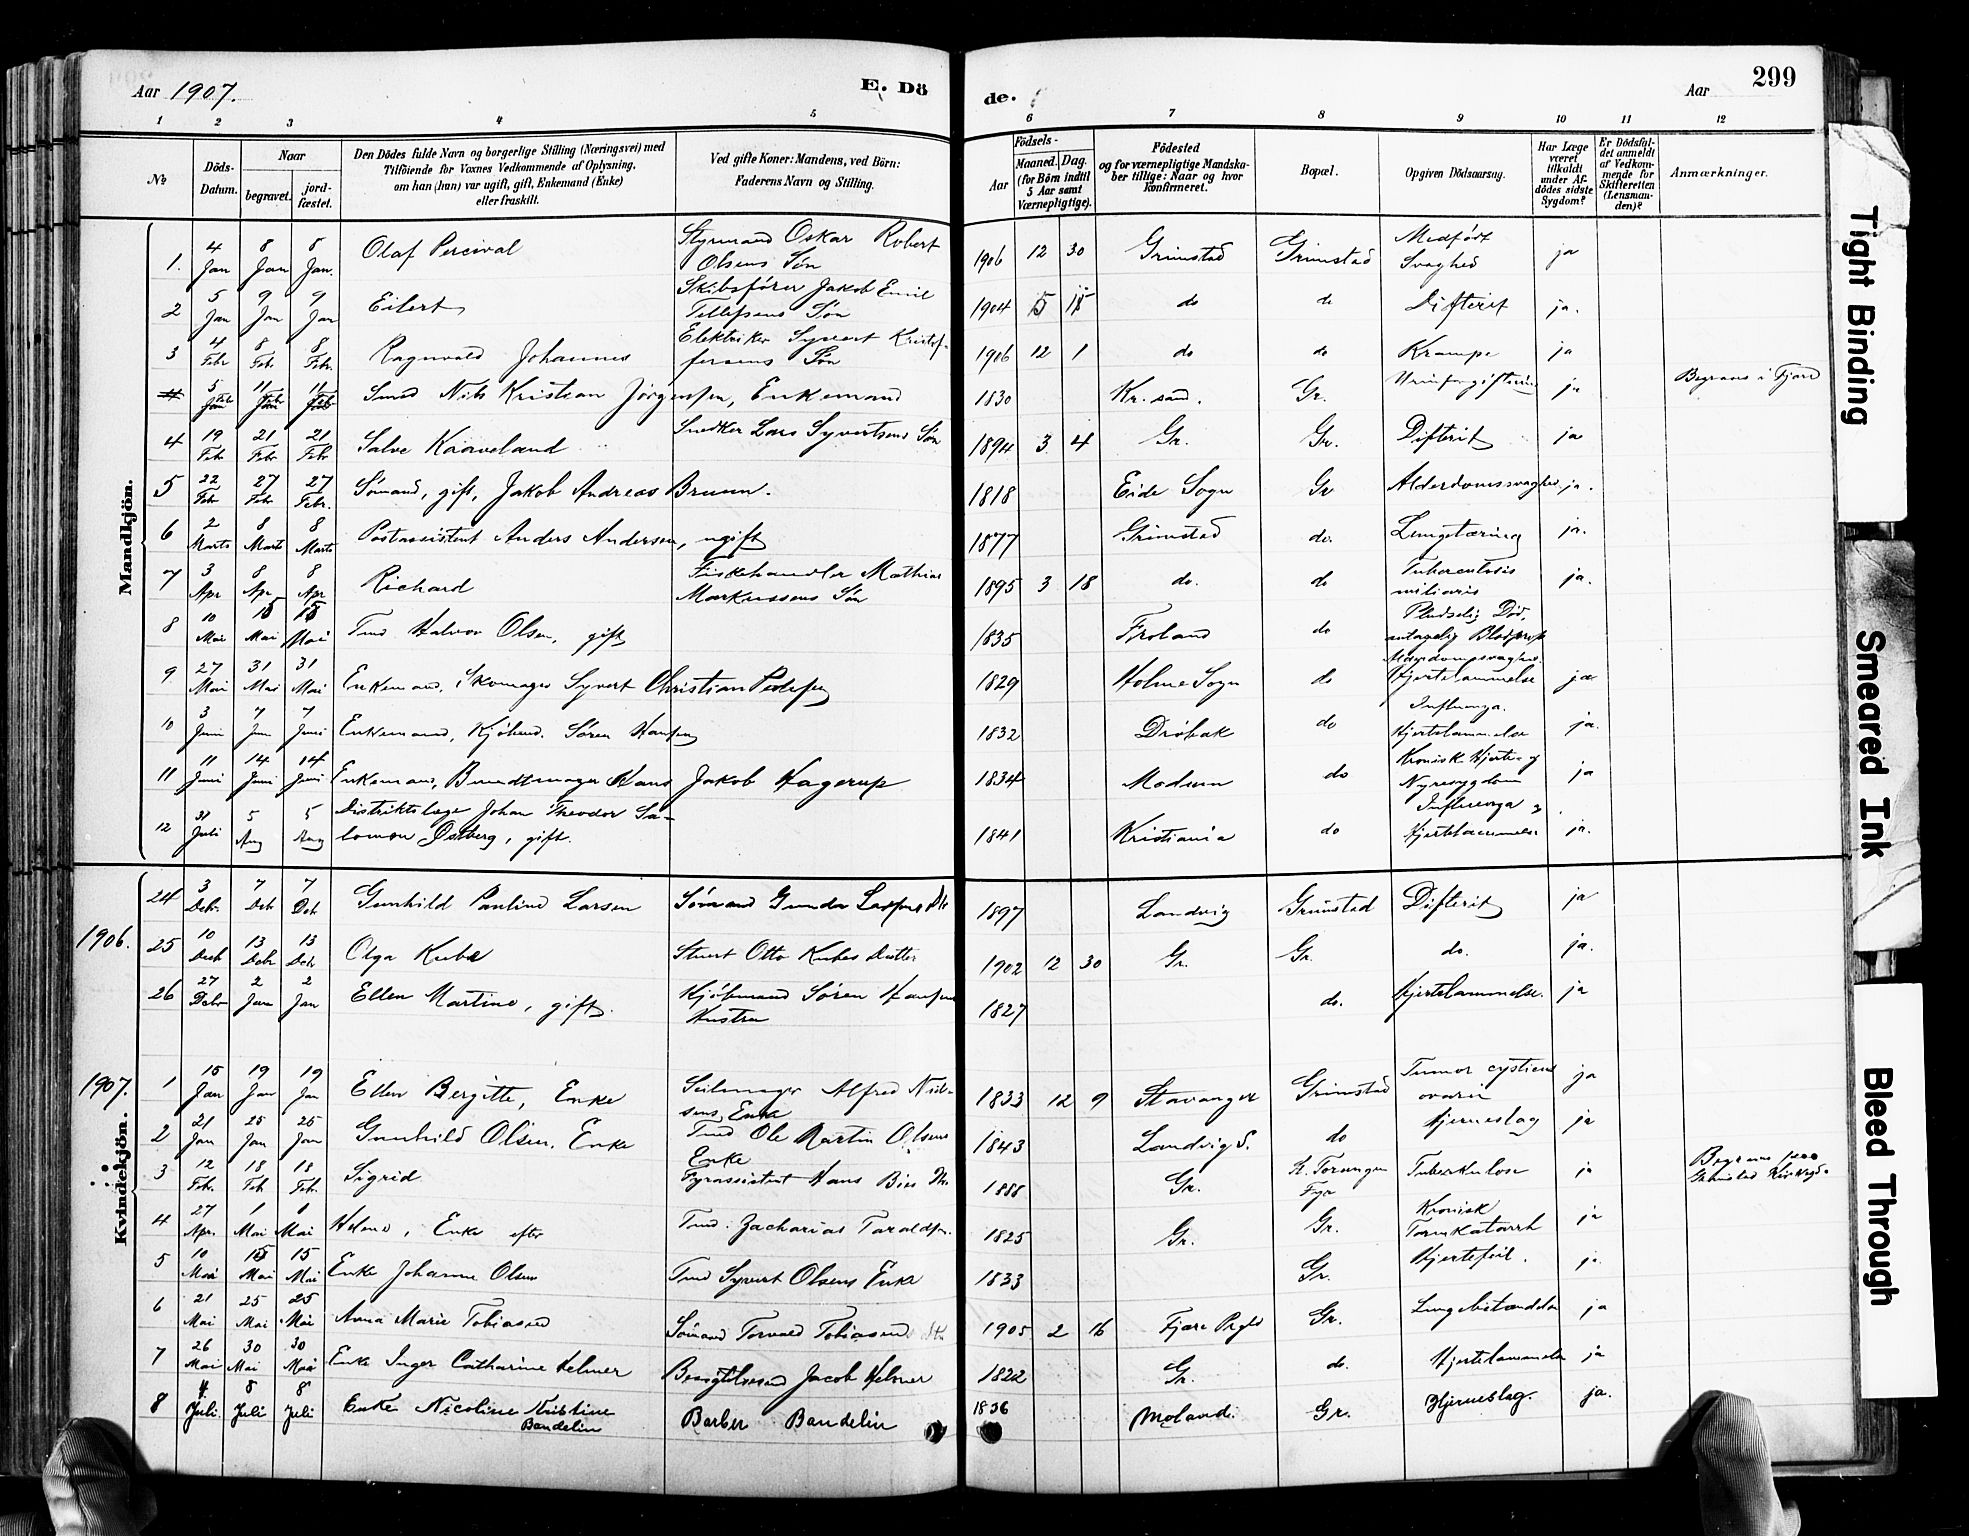 299
Aar 1907.
E. Dö
de.
Aar
1 2 3 4 5 6 7 8 9 10 11 12
No
Döds-Datum.
Naar
begravet.
jord-fæstet.
Den Dödes fulde Navn og borgerlige Stilling (Næringsvei) med
Tilföiende for Voxnes Vedkommende af Oplysning,
om han (hun) var ugift, gift, Enkemand (Enke)
eller fraskilt.
Ved gifte Koner: Mandens, ved Börn:
Faderens Navn og Stilling.
Födsels-
Aar
Maaned. Dag.
(for Börn indtil
5 Aar samt
Værnepligtige).
Födested
og for værnepligtige Mandska-
ber tillige: Naar og hvor
Konfirmeret.
Bopæl.
Opgiven Dödsaarsag.
Har Læge
været
tilkaldt
under Af-
dödes sidste
Sygdom?
Er Dödsfal-
det anmeldt
af Vedkom-
mende for
Skifteretten
(Lensman-
den)?
Anmærkninger.
Mandkjön.
1. 4 Jan 8 Jan 8 Jan. Olaf Percival Styrmand Oskar Robert Olsens Søn 1906 12 30 Grimstad Grimstad Medfödt Svaghed ja
2 5 Jan 9 Jan 9 Jan Eilert Skibsfører Jakob Emil Tellefsens Søn 1904 5 do do Difterit ja.
3 4 Febr 8 Febr. 8 Febr. Ragnvald Johannes Elektriker Syvert Kristof-fersens Søn 1906 12 1 do do Krampe ja
5 Febr 11 Febr 11 Febr Smed Nils Kristian Jörgensen, Enkemand 1830 Kr.sand. Gr. ja Begraves i Fjære
4 19 Febr 21 Febr 21 Febr Salve Kaaveland Snedker Lars Syvertsens Søn 1894 3 4 Gr. Gr. Difterit ja
5 22 Febr 27 Febr 27 Febr. Sömand, gift, Jakob Andreas Bruun. 1818 Eide Sogn Gr Alderdomssvaghed ja.
6 2 Marts 8 Marts 8 Marts Postassistent Anders Andersen, ugift 1877 Grimstad do. Lungetæring ja.
7 3 Apr 8 Apr 8 Apr Richard Fiskehandler Mathias Markussens Søn 1895 3 18 do. do Tuberculosis miliaris ja.
8 10 Mai 15 Mai 15 Mai Tmd Halvor Olsen, gift 1835 Froland do Pludselig Död, antagelig
9 27 Mai 31 Mai 31 Mai Enkemand, Skomager Syvert Christian Pedersen 1829 Holme Sogn do Alderdomssvaghed. Hjertelammelse ja
10 3 Juni 7 Jun 7 Juni Enkemand, Kjöbmd. Sören Hansen 1832 Dröbak do Influenza. Hjertelammelse ja.
11 11 Juni 14 Juni 14 Juni Enkemand, Bundtmager Hans Jakob Hagerup 1834 Modum do Kronisk Hjerte- og Nyresygdom ja
12 31 Juli 5 Aug 5 Aug Distriktslæge Johan Theodor Sa-lomon Östberg, gift. 1841 Kristiania do Influenza og Hjertelammelse ja.
1906.
24 3 Debr. 7 Deb 7 Deb Gunhild Pauline Larsen Sömand Gunder Larsens Dtr 1897 Landvig Grimstad Difterit ja
25 10 Decb 13 Debr 13 Debr. Olga Kube Stuert Otto Kubes Datter 1902 12 30 Gr. Gr. do. ja.
26 27 Debr 2 Jan 2 Jan Ellen Martine, gift. Kjöbmand Sören Hansens Hustru 1827 do. Hjertelammelse. ja
1907.
Kvindekjön.
1 15 Jan 19 Jan 19 Jan Ellen Bergitte, Enke Seilmager Alfred Niel-sens Enke 1833 12 9 Stavanger Grimstad Tumor cysticus ovarii ja
2 21 Jan 25 Jan 25 Jan Gunhild Olsen, Enke Tmd Ole Martin Olsens Enke 1843 Landvig S. do Hjerneslag ja
3 12 Feb. 18 Feb 18 Feb. Sigrid Fyrassistent Hans 1888 Gr. Torungen Fyr Tuberkulose ja Begraves Grimstad
4 27 Apr. 1 Mai Mai Helene, Enke efter Tmd. Zacharias Taraldsen. 1825 Gr. Gr. Kronisk Tarmkatarrh ja
5 10 Mai 15 Mai 15 Mai Enke Johanne Olsen Tmd Syvert Olsens Enke 1833 Gr. Hjertefeil. ja.
6 21 Mai 25 Mai 25 Mai Anna Marie Tobiassen Sömand Torvald Tobiasens 1905 2 16 Fjære Prgld Gr. Lungebetændelse ja
7 26 Mai 30 Mai 30 Mai Enke Inger Cathrine Helmer Jacob Helmer 1822 Gr. do. Hjertelammelse ja
8 4 Juli 8 Juli 8 Juli Enke Nicoline Kristine Bandelin Barber Bandelin 1836 Moland. Gr. Hjerneslag. ja.
Tight Binding
Smeared Ink
Bleed Through